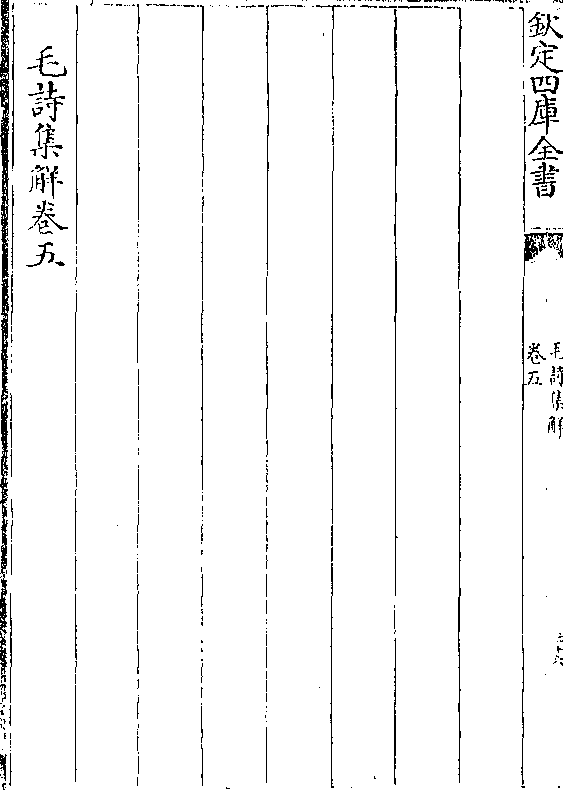 欽定四庫全書
毛詩集解
卷五
毛詩集解卷五